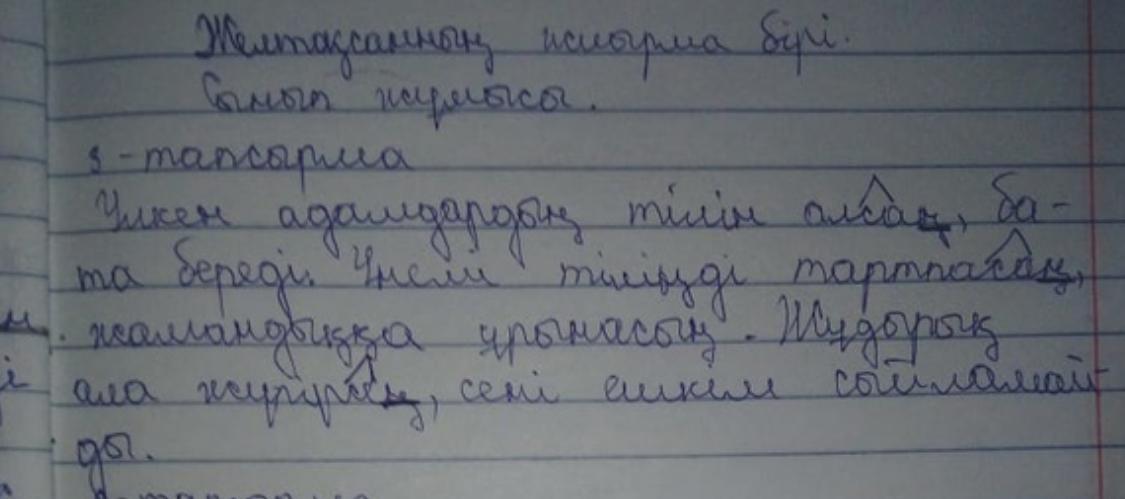 Желтоқсанның жиырма бірі.
Сынып жұмысы.
3-тапсырма
Үлкен адамдардың тілін алсаң, ба-
та береді. Үнемі тіліңді тартпасаң,
жамандыққа ұрынасың. Жұдырық
ала жүгірсең, сені ешкім сыйламай
ды.